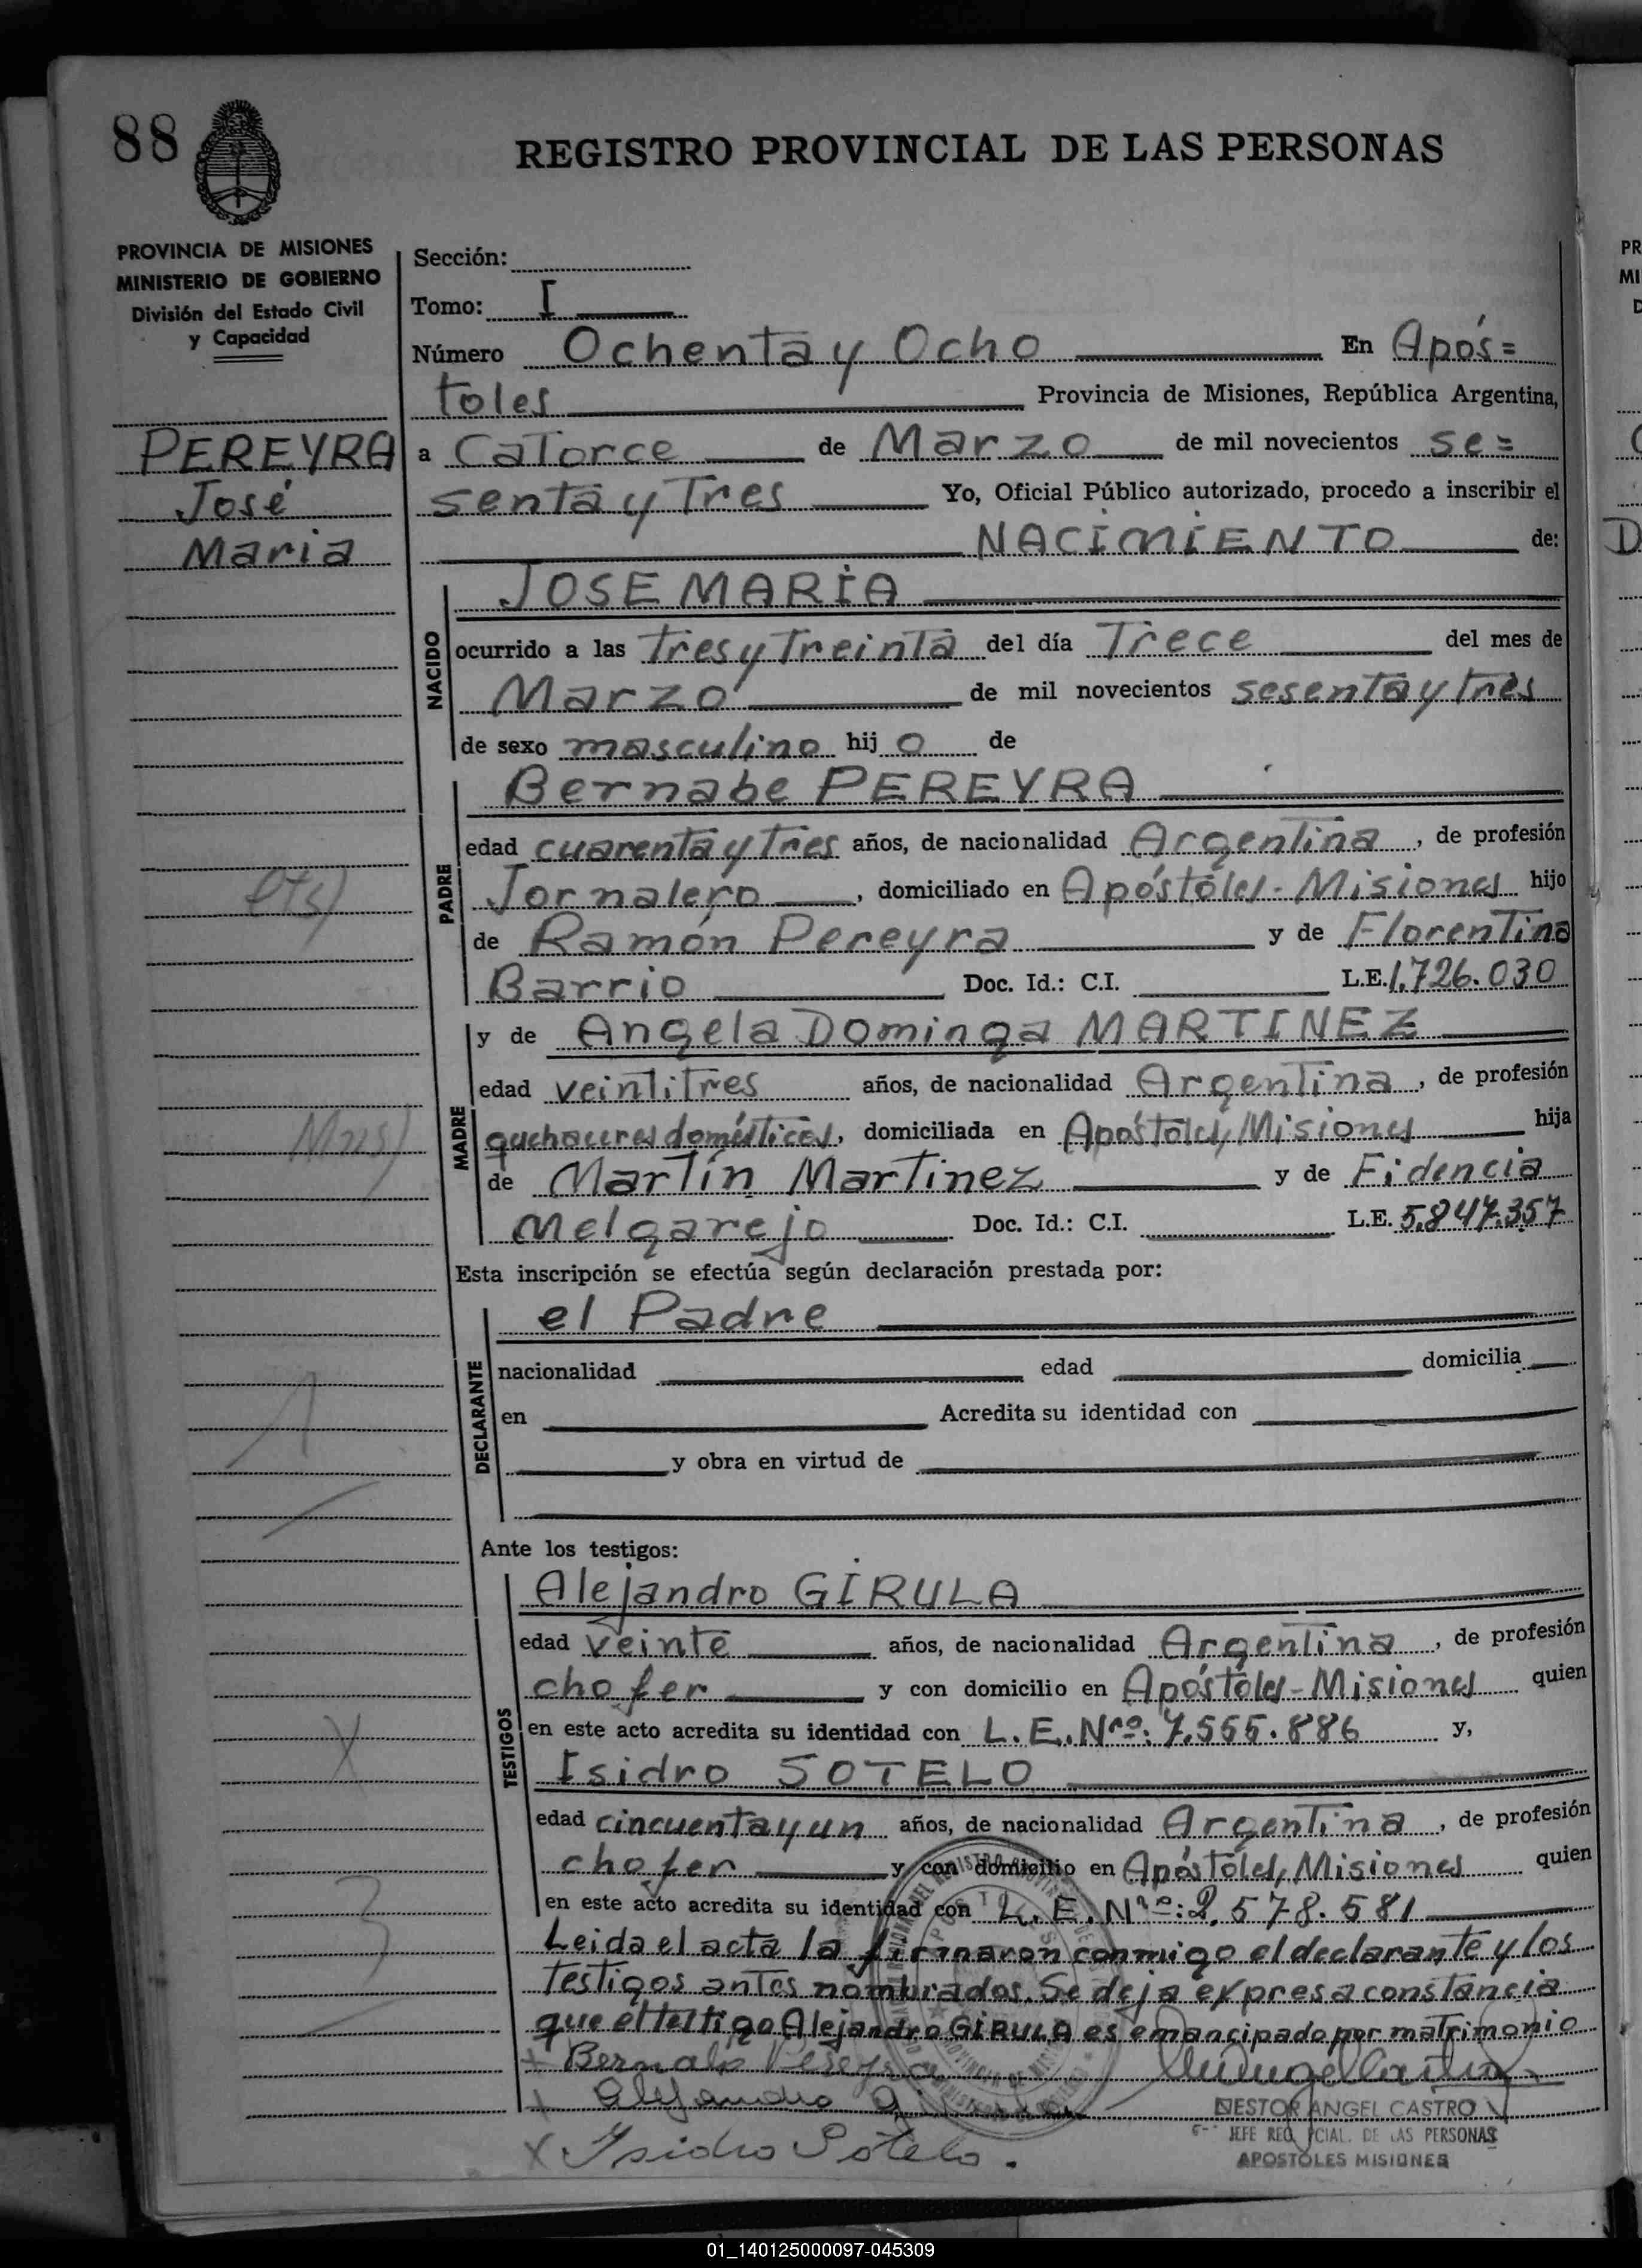 88
REGISTRO PROVINCIAL DE LAS PERSONAS
PROVINCIA DE MISIONES
MINISTERIO DE GOBIERNO
División del Estado Civil
y Capacidad
PEREYRA
José
Maria
Sección:
Tomo: I
Número Ochenta y Ocho En Após=
toles Provincia de Misiones, República Argentina,
a Catorce de Marzo de mil novecientos se=
senta y Tres Yo, Oficial Público autorizado, procedo a inscribir el
NACIMIENTO de:
NACIDO
JOSE MARIA
ocurrido a las tres y treinta del día Trece del mes de
Marzo de mil novecientos sesenta y tres
de sexo masculino hij o de
PADRE
Bernabe PEREYRA
edad cuarenta y tres años, de nacionalidad Argentina, de profesión
Jornalero, domiciliado en Apóstoles - Misiones hijo
de Ramón Pereyra y de Florentina
Barrio Doc. Id.: C.I. L.E. 1.726.030
MADRE
y de Angela Dominga MARTINEZ
edad veintitres años, de nacionalidad Argentina, de profesión
quehaceres domésticos, domiciliada en Apóstoles, Misiones hija
de Martín Martinez y de Fidencia
Melgarejo Doc. Id.: C.I. L.E. 5.847.357
Esta inscripción se efectúa según declaración prestada por:
DECLARANTE
el Padre
nacionalidad edad domicilia
en Acredita su identidad con
y obra en virtud de
Ante los testigos:
TESTIGOS
Alejandro GIRULA
edad veinte años, de nacionalidad Argentina, de profesión
chofer y con domicilio en Apóstoles - Misiones quien
en este acto acredita su identidad con L.E. Nro: 7.555.886 y,
Isidro SOTELO
edad cincuenta y un años, de nacionalidad Argentina, de profesión
chofer y con domicilio en Apóstoles, Misiones quien
en este acto acredita su identidad con L.E. Nro: 2.578.581
Leida el acta la firmaron conmigo el declarante y los
testigos antes nombrados. Se deja expresa constancia
que el testigo Alejandro GIRULA es emancipado por matrimonio
+ Bernabe Pereyra
+ Alejandro
X Isidro Sotelo.
NESTOR ANGEL CASTRO
JEFE REG. PCIAL. DE LAS PERSONAS
APOSTOLES MISIONES
01_140125000097-045309